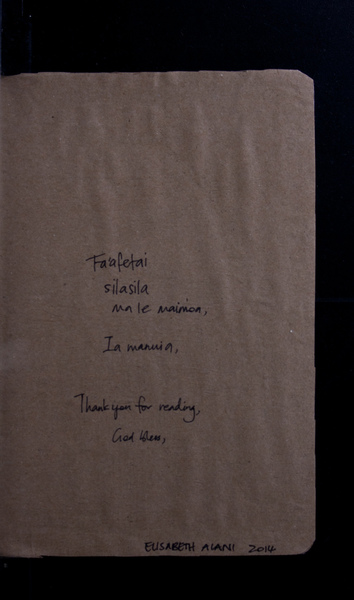 Fa'afetai
silasila
ma le maimoa,
Ia manuia,
Thank you for reading,
God bless,
ELISABETH ALANI 2014